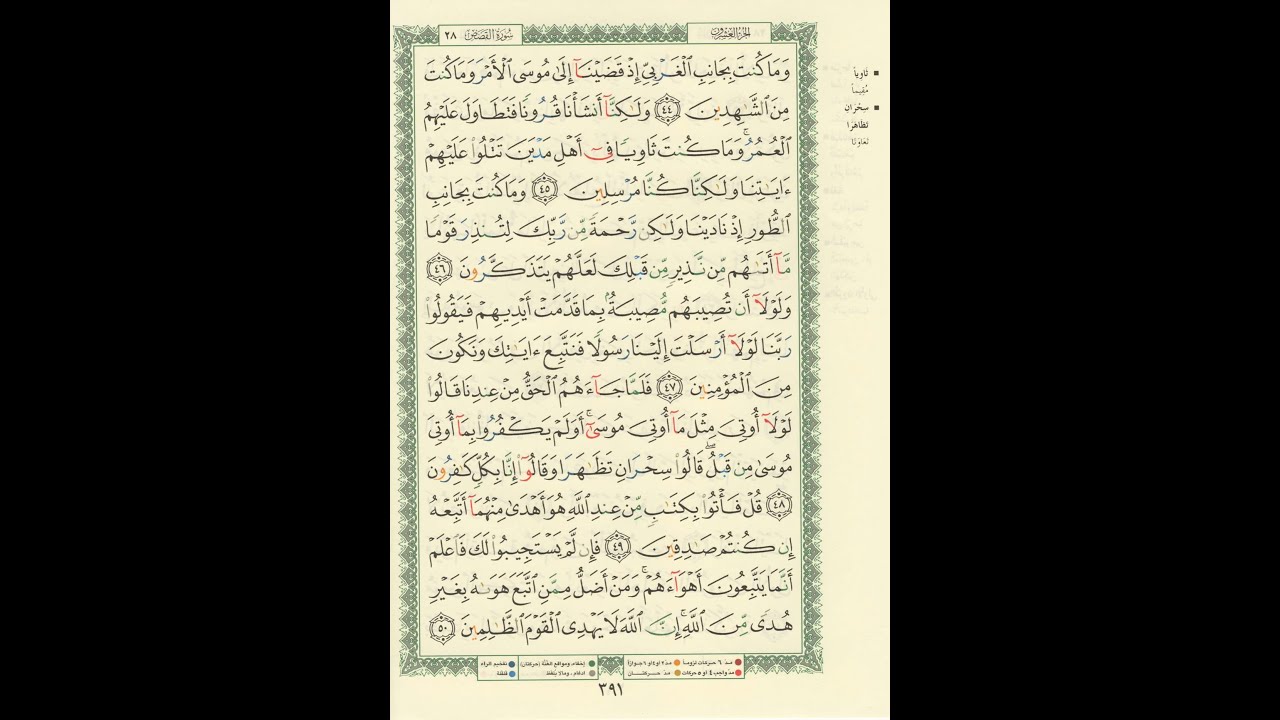 سُورَةُ القَصَصِ ٢٨
الجُزءُ العِشرُون
وَمَا كُنتَ بِجَانِبِ ٱلْغَرْبِىِّ إِذْ قَضَيْنَآ إِلَىٰ مُوسَى ٱلْأَمْرَ وَمَا كُنتَ
مِنَ ٱلشَّـٰهِدِينَ ٤٤ وَلَـٰكِنَّآ أَنشَأْنَا قُرُونًا فَتَطَاوَلَ عَلَيْهِمُ
ٱلْعُمُرُ ۚ وَمَا كُنتَ ثَاوِيًا فِىٓ أَهْلِ مَدْيَنَ تَتْلُوا۟ عَلَيْهِمْ
ءَايَـٰتِنَا وَلَـٰكِنَّا كُنَّا مُرْسِلِينَ ٤٥ وَمَا كُنتَ بِجَانِبِ
ٱلطُّورِ إِذْ نَادَيْنَا وَلَـٰكِن رَّحْمَةً مِّن رَّبِّكَ لِتُنذِرَ قَوْمًا
مَّآ أَتَىٰهُم مِّن نَّذِيرٍ مِّن قَبْلِكَ لَعَلَّهُمْ يَتَذَكَّرُونَ ٤٦
وَلَوْلَآ أَن تُصِيبَهُم مُّصِيبَةٌۢ بِمَا قَدَّمَتْ أَيْدِيهِمْ فَيَقُولُوا۟
رَبَّنَا لَوْلَآ أَرْسَلْتَ إِلَيْنَا رَسُولًا فَنَتَّبِعَ ءَايَـٰتِكَ وَنَكُونَ
مِنَ ٱلْمُؤْمِنِينَ ٤٧ فَلَمَّا جَآءَهُمُ ٱلْحَقُّ مِنْ عِندِنَا قَالُوا۟
لَوْلَآ أُوتِىَ مِثْلَ مَآ أُوتِىَ مُوسَىٰٓ ۚ أَوَلَمْ يَكْفُرُوا۟ بِمَآ أُوتِىَ
مُوسَىٰ مِن قَبْلُ ۖ قَالُوا۟ سِحْرَانِ تَظَـٰهَرَا وَقَالُوٓا۟ إِنَّا بِكُلٍّ كَـٰفِرُونَ
٤٨ قُلْ فَأْتُوا۟ بِكِتَـٰبٍ مِّنْ عِندِ ٱللَّهِ هُوَ أَهْدَىٰ مِنْهُمَآ أَتَّبِعْهُ
إِن كُنتُمْ صَـٰدِقِينَ ٤٩ فَإِن لَّمْ يَسْتَجِيبُوا۟ لَكَ فَٱعْلَمْ
أَنَّمَا يَتَّبِعُونَ أَهْوَآءَهُمْ ۚ وَمَنْ أَضَلُّ مِمَّنِ ٱتَّبَعَ هَوَىٰهُ بِغَيْرِ
هُدًى مِّنَ ٱللَّهِ ۚ إِنَّ ٱللَّهَ لَا يَهْدِى ٱلْقَوْمَ ٱلظَّـٰلِمِينَ ٥٠
ثاوِياً
مُقِيماً
سِحْرَانِ
تظاهَرَا
تَعَاوَنَا
مدّ ٦ حركات لزوماً مدّ ٢ أو ٤ أو ٦ جوازاً
مدّ واجب ٤ أو ٥ حركات مدّ حركتان
إخفاء، ومواقع الغُنَّة (حركتان) تفخيم الراء
ادغام، ومالا يُلفظ قلقلة
٣٩١